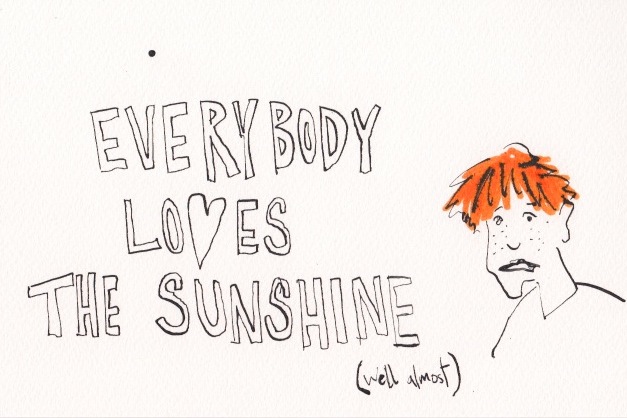 EVERYBODY
LOVES
THE SUNSHINE
(well almost)